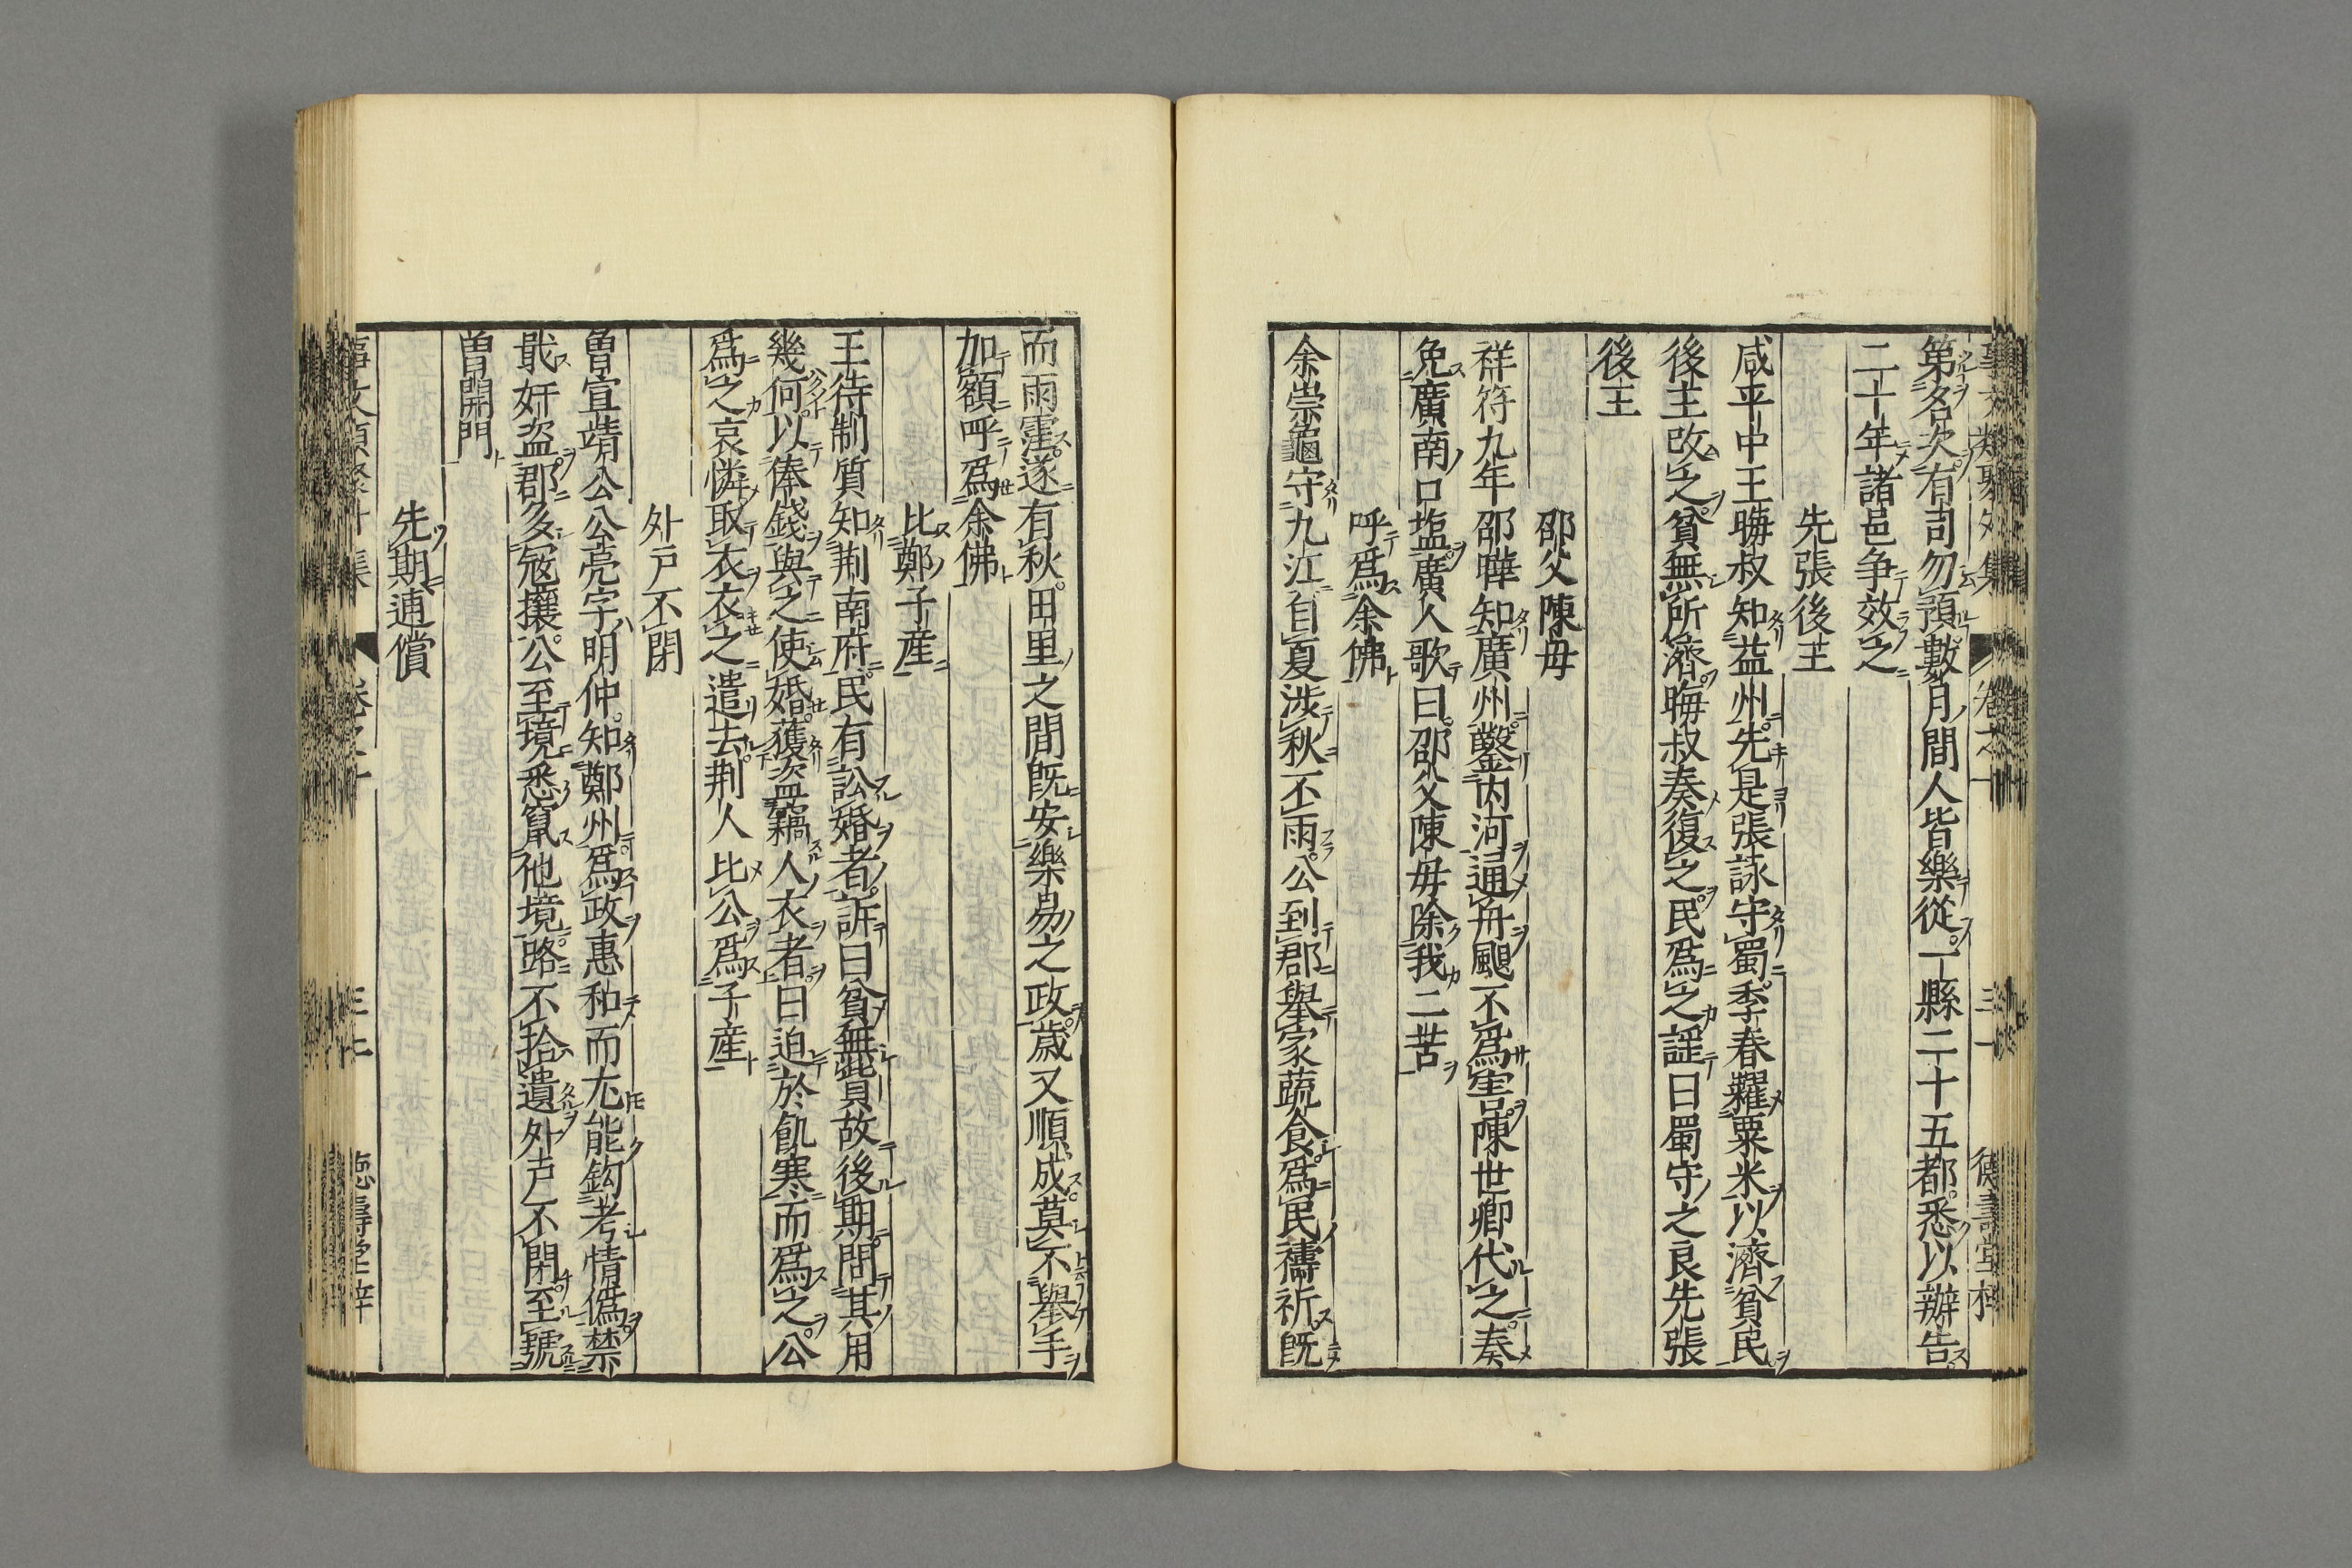 第名次有司勿預數月間人皆樂從一縣二十五都悉以辦告
二十年諸邑争效之
先張後王
咸平中王晦叔知益州先是張詠守蜀季春糶粟米以濟貧民
後主改之貧無所濟晦叔奏復之民爲之謡曰蜀守之良先張
後王
邵父陳母
祥符九年邵曄知廣州鑿内河通舟颶不爲害陳世卿代之奏
免廣南口塩廣人歌曰邵父陳母除我二苦
呼爲余佛
余崇龜守九江自夏涉秋不雨公到郡舉家蔬食爲民禱祈既
而雨霪遂有秋田里之間既安樂易之政歳又順成莫不舉手
加額呼爲余佛
比鄭子産
王待制質知荆南府民有訟婚者訴曰貧無貲故後期問其用
幾何以俸錢與之使婚獲盗竊人衣者曰迫於飢寒而爲之公
爲之哀憐取衣衣之遣去荆人比公爲子産
外戸不閉
曽宣靖公公亮字明仲知鄭州爲政惠和而尤能鈎考情偽禁
戢奸盗郡多冦攘公至境悉竄他境路不拾遺外戸不閉至號
曽開門
先期逋償